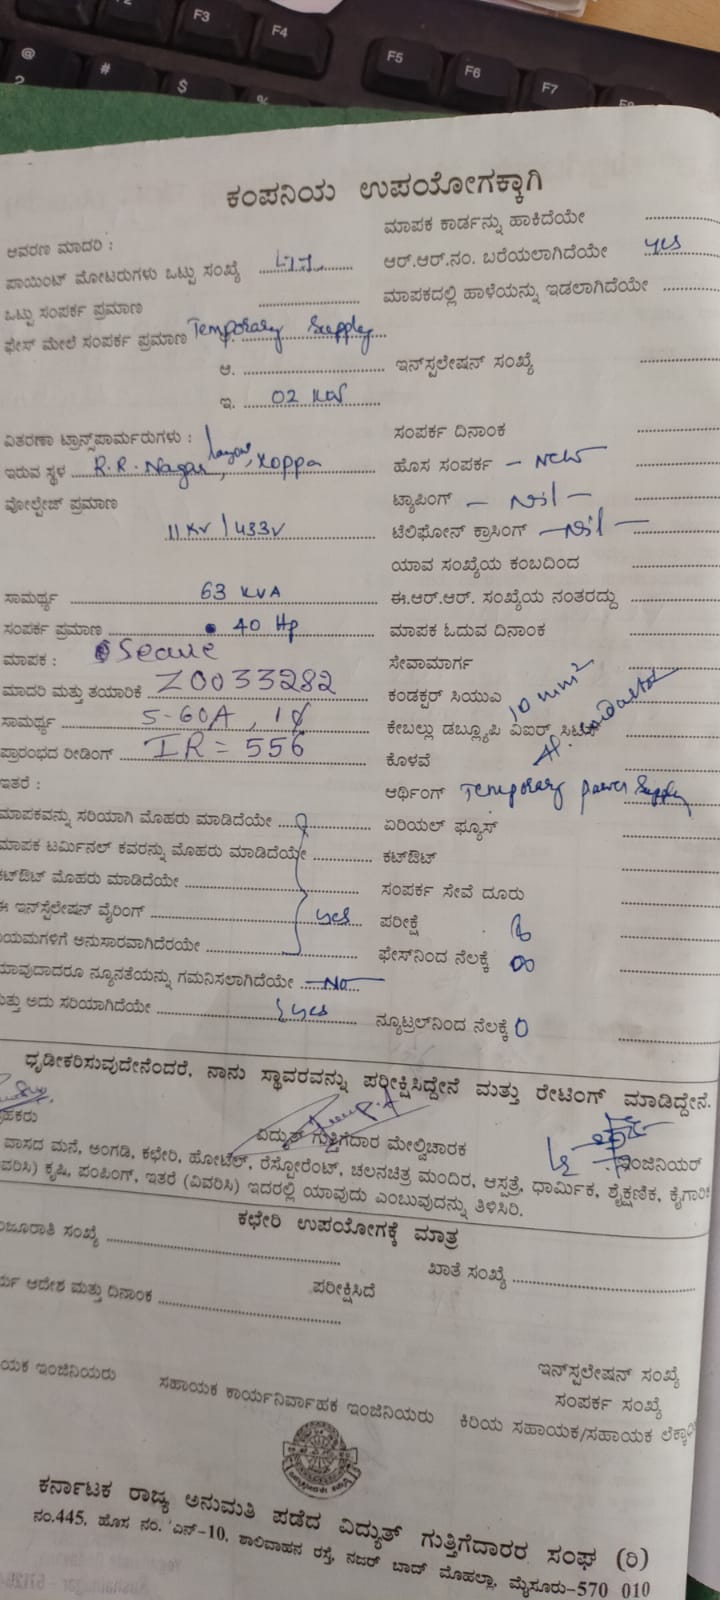 F3
F4
F5
F6
F7
@
2
#
$
%
ಕಂಪನಿಯ ಉಪಯೋಗಕ್ಕಾಗಿ
ಆವರಣ ಮಾದರಿ :
ಮಾಪಕ ಕಾರ್ಡನ್ನು ಹಾಕಿದೆಯೇ
ಪಾಯಿಂಟ್ ಮೋಟರುಗಳು ಒಟ್ಟು ಸಂಖ್ಯೆ
ಆರ್.ಆರ್.ನಂ. ಬರೆಯಲಾಗಿದೆಯೇ yes
ಒಟ್ಟು ಸಂಪರ್ಕ ಪ್ರಮಾಣ
ಮಾಪಕದಲ್ಲಿ ಹಾಳೆಯನ್ನು ಇಡಲಾಗಿದೆಯೇ
ಫೇಸ್ ಮೇಲೆ ಸಂಪರ್ಕ ಪ್ರಮಾಣ Temporary Supply
ಆ.
ಇನ್‌ಸ್ಪಲೇಷನ್ ಸಂಖ್ಯೆ
ಇ. 02 KW
ವಿತರಣಾ ಟ್ರಾನ್ಸ್‌ಪಾರ್ಮರುಗಳು :
ಸಂಪರ್ಕ ದಿನಾಂಕ
ಇರುವ ಸ್ಥಳ R.R. Nagar, Koppa
ಹೊಸ ಸಂಪರ್ಕ - New
ವೋಲ್ಟೇಜ್ ಪ್ರಮಾಣ
ಟ್ಯಾಪಿಂಗ್ - Nil -
11 KV / 433V
ಟೆಲಿಫೋನ್ ಕ್ರಾಸಿಂಗ್ - Nil -
ಯಾವ ಸಂಖ್ಯೆಯ ಕಂಬದಿಂದ
ಸಾಮರ್ಥ್ಯ 63 KVA
ಈ.ಆರ್.ಆರ್. ಸಂಖ್ಯೆಯ ನಂತರದ್ದು
ಸಂಪರ್ಕ ಪ್ರಮಾಣ 40 Hp
ಮಾಪಕ ಓದುವ ದಿನಾಂಕ
ಮಾಪಕ :
ಸೇವಾಮಾರ್ಗ
ಮಾದರಿ ಮತ್ತು ತಯಾರಿಕೆ Z0033282
ಕಂಡಕ್ಟರ್ ಸಿಯುವಿ 10 mm²
ಸಾಮರ್ಥ್ಯ 5-60A, 1ϕ
ಕೇಬಲ್ಲು ಡಬ್ಲ್ಯೂಪಿ ವಿಐರ್
ಪ್ರಾರಂಭದ ರೀಡಿಂಗ್ IR = 556
ಕೊಳವೆ
ಇತರೆ :
ಆರ್ಥಿಂಗ್ Temporary power Supply
ಮಾಪಕವನ್ನು ಸರಿಯಾಗಿ ಮೊಹರು ಮಾಡಿದೆಯೇ
ಏರಿಯಲ್ ಫ್ಯೂಸ್
ಮಾಪಕ ಟರ್ಮಿನಲ್ ಕವರನ್ನು ಮೊಹರು ಮಾಡಿದೆಯೇ
ಕಟ್‌ಔಟ್
ಕಟ್‌ಔಟ್ ಮೊಹರು ಮಾಡಿದೆಯೇ
ಸಂಪರ್ಕ ಸೇವೆ ದೂರು
ಈ ಇನ್‌ಸ್ಪೆಲೇಷನ್ ವೈರಿಂಗ್ yes
ಪರೀಕ್ಷೆ
ನಿಯಮಗಳಿಗೆ ಅನುಸಾರವಾಗಿದೆರಯೇ
ಫೇಸ್‌ನಿಂದ ನೆಲಕ್ಕೆ ∞
ಯಾವುದಾದರೂ ನ್ಯೂನತೆಯನ್ನು ಗಮನಿಸಲಾಗಿದೆಯೇ No
ಮತ್ತು ಅದು ಸರಿಯಾಗಿದೆಯೇ yes
ನ್ಯೂಟ್ರಲ್‌ನಿಂದ ನೆಲಕ್ಕೆ 0
ಧೃಡೀಕರಿಸುವುದೇನೆಂದರೆ, ನಾನು ಸ್ಥಾವರವನ್ನು ಪರೀಕ್ಷಿಸಿದ್ದೇನೆ ಮತ್ತು ರೇಟಿಂಗ್ ಮಾಡಿದ್ದೇನೆ.
ವಿದ್ಯುತ್ ಗುತ್ತಿಗೆದಾರ ಮೇಲ್ವಿಚಾರಕ
ಇಂಜಿನಿಯರ್
ವಾಸದ ಮನೆ, ಅಂಗಡಿ, ಕಛೇರಿ, ಹೋಟೆಲ್, ರೆಸ್ಟೋರೆಂಟ್, ಚಲನಚಿತ್ರ ಮಂದಿರ, ಆಸ್ಪತ್ರೆ, ಧಾರ್ಮಿಕ, ಶೈಕ್ಷಣಿಕ,
ಕೃಷಿ, ಪಂಪಿಂಗ್, ಇತರೆ (ವಿವರಿಸಿ) ಇದರಲ್ಲಿ ಯಾವುದು ಎಂಬುವುದನ್ನು ತಿಳಿಸಿರಿ.
ಕಛೇರಿ ಉಪಯೋಗಕ್ಕೆ ಮಾತ್ರ
ಸಂಖ್ಯೆ
ಖಾತೆ ಸಂಖ್ಯೆ
ಆದೇಶ ಮತ್ತು ದಿನಾಂಕ
ಪರೀಕ್ಷಿಸಿದೆ
ಇಂಜಿನಿಯರು
ಸಹಾಯಕ ಕಾರ್ಯನಿರ್ವಾಹಕ ಇಂಜಿನಿಯರು
ಇನ್‌ಸ್ಪಲೇಷನ್ ಸಂಖ್ಯೆ
ಸಂಪರ್ಕ ಸಂಖ್ಯೆ
ಕಿರಿಯ ಸಹಾಯಕ/ಸಹಾಯಕ
ಕರ್ನಾಟಕ ರಾಜ್ಯ ಅನುಮತಿ ಪಡೆದ ವಿದ್ಯುತ್ ಗುತ್ತಿಗೆದಾರರ ಸಂಘ (ರಿ)
ನಂ.445, ಹೊಸ ನಂ. ಎನ್-10, ಶಾಲಿವಾಹನ ರಸ್ತೆ, ನಜರ್ ಬಾದ್ ಮೊಹಲ್ಲಾ, ಮೈಸೂರು-570 010